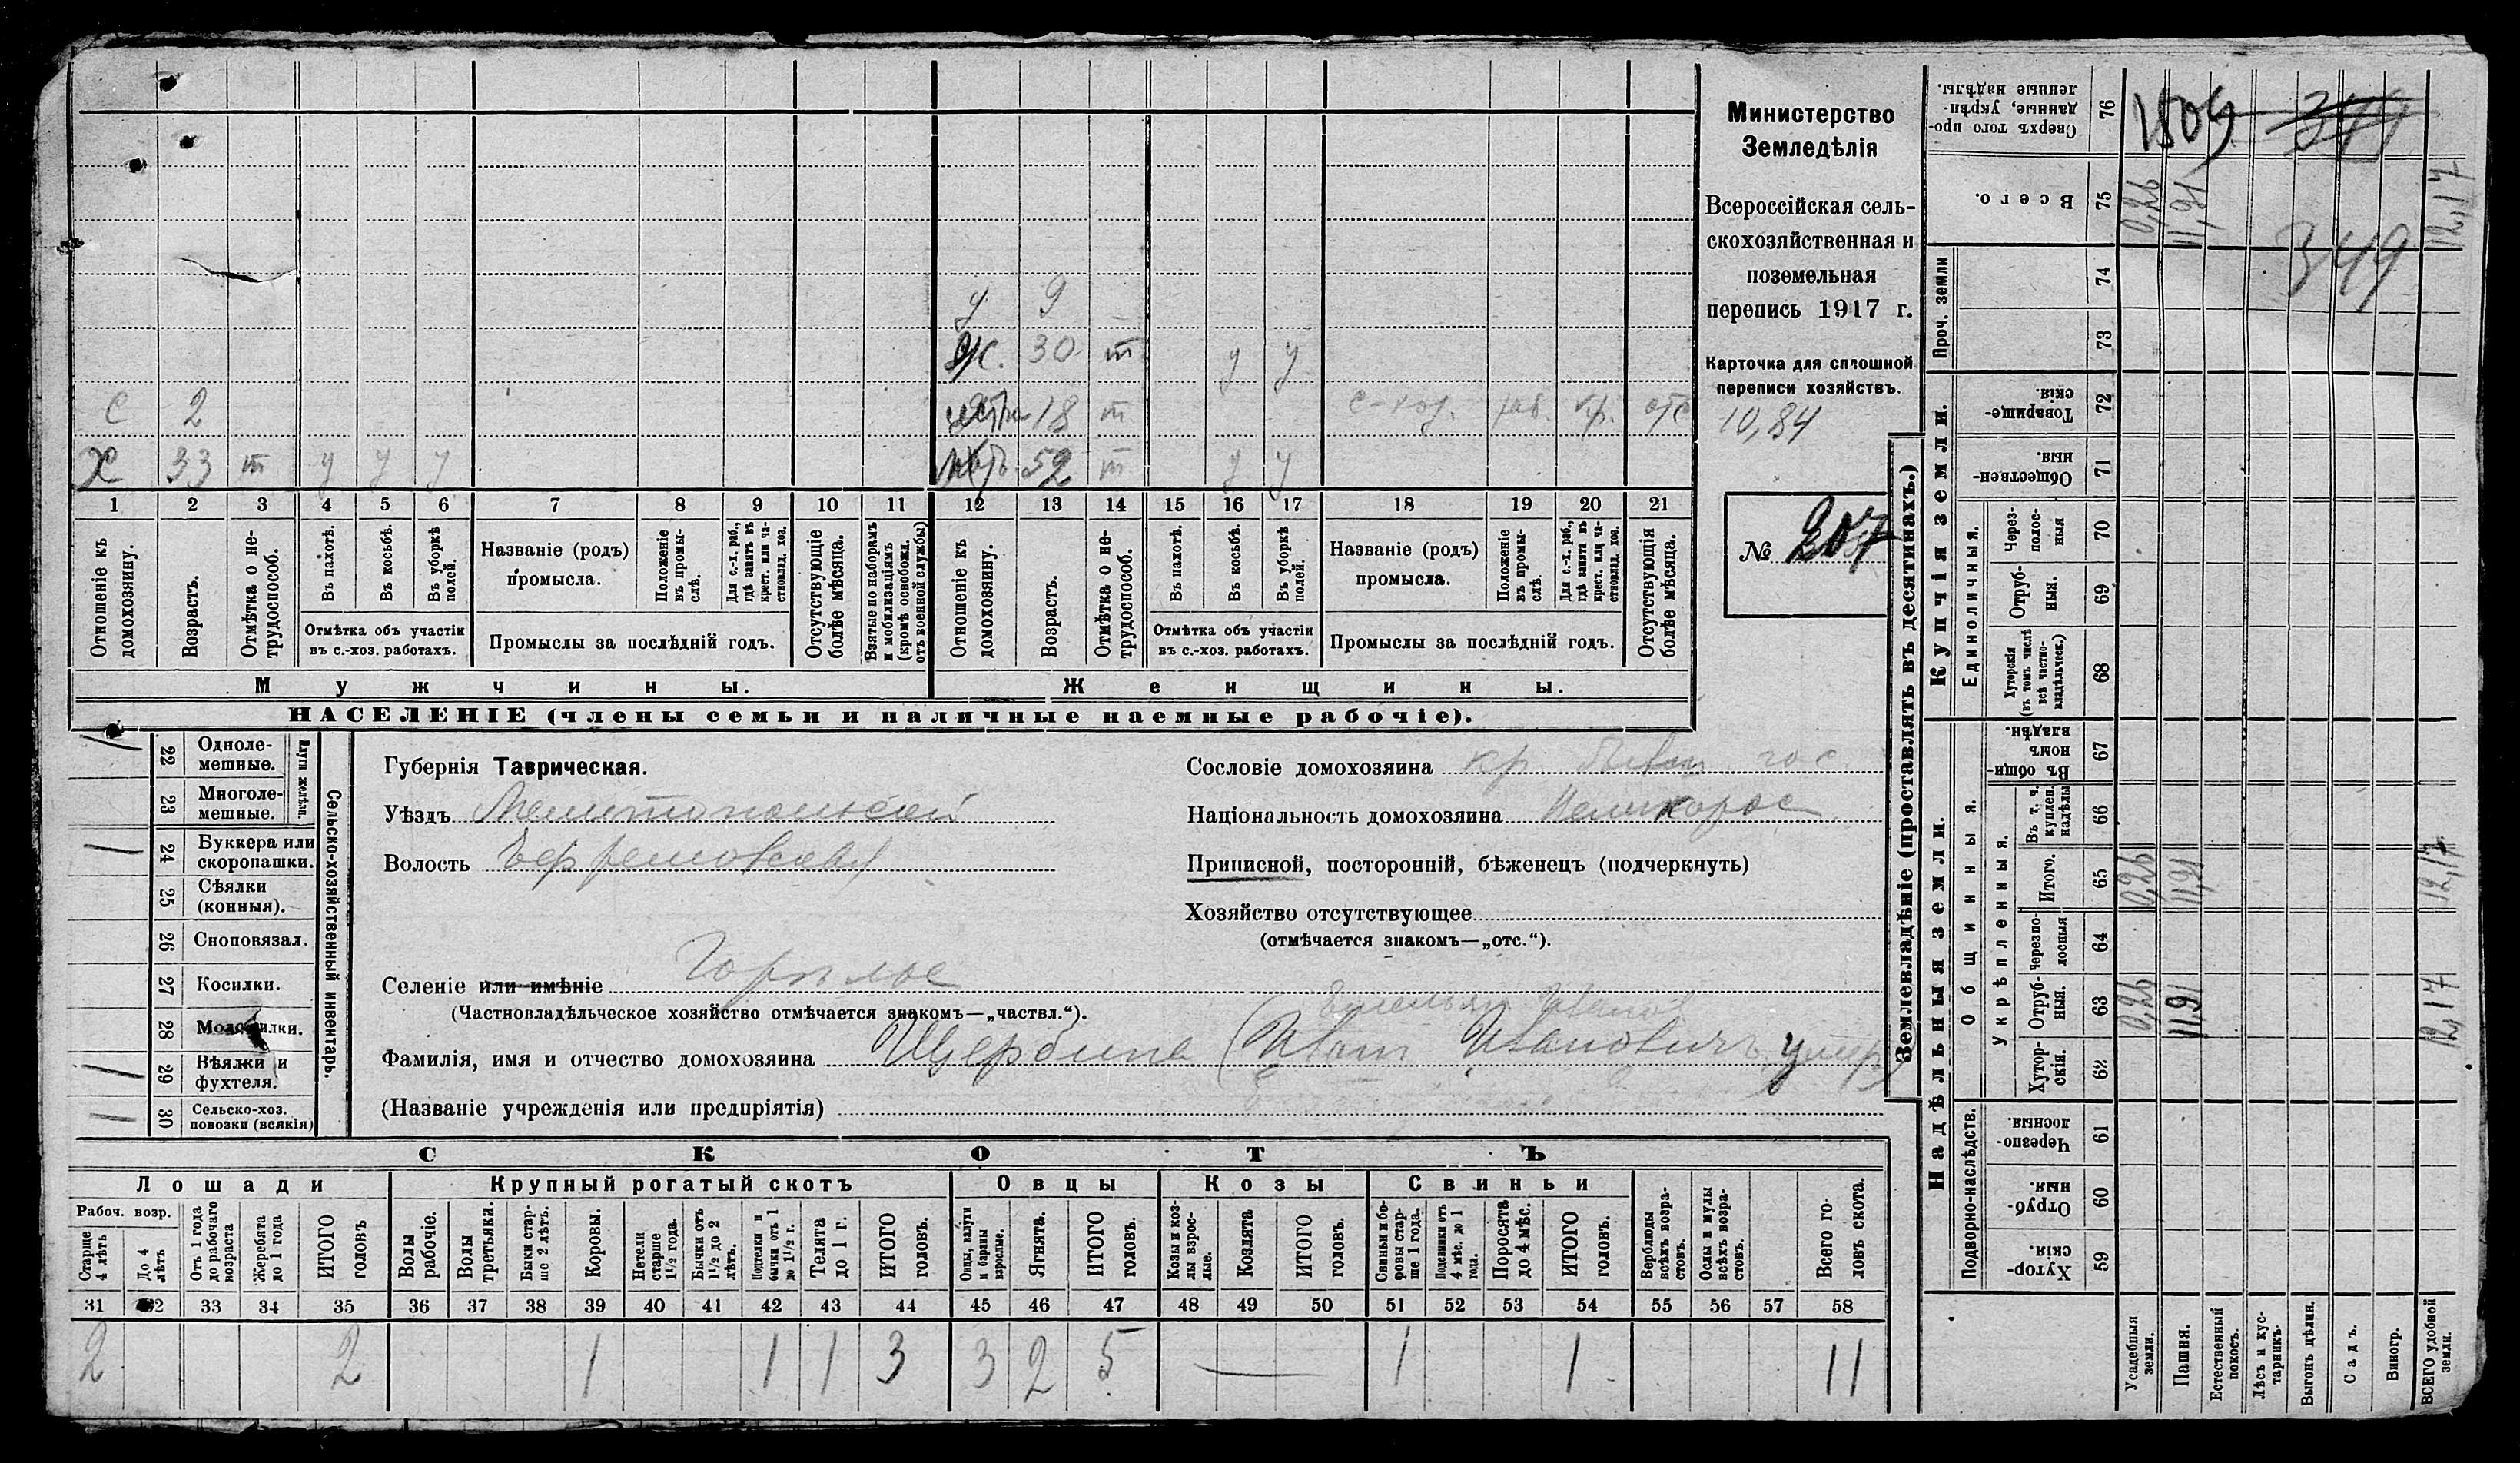 у 9
Ж. 30 т у у
С 2 18 т с-хоз. раб. кр. отс
Х 33 т у у у мать 52 т у у
1 2 3 4 5 6 7 8 9 10 11 12 13 14 15 16 17 18 19 20 21
Отношеніе къ домохозяину.
Возрастъ.
Отмѣтка о не-трудоспособ.
Въ пахотѣ.
Въ косьбѣ.
Въ уборкѣ полей.
Отмѣтка объ участіи
въ с.-хоз. работахъ.
Названіе (родъ)
промысла.
Положеніе въ промы-слѣ.
Для с.-х. раб., гдѣ занятъ въ крест. или ча-стновлад. хоз.
Промыслы за послѣдній годъ.
Отсутствующіе болѣе мѣсяца.
Взятые по наборамъ и мобилизаціямъ (кромѣ освобожд. отъ военной службы)
Отношеніе къ домохозяину.
Возрастъ.
Отмѣтка о не-трудоспособ.
Въ пахотѣ.
Въ косьбѣ.
Въ уборкѣ полей.
Отмѣтка объ участіи
въ с.-хоз. работахъ.
Названіе (родъ)
промысла.
Положеніе въ промы-слѣ.
Для с.-х. раб., гдѣ занята въ крест. или ча-стновлад. хоз.
Промыслы за послѣдній годъ.
Отсутствующія болѣе мѣсяца.
Мужчины. Женщины.
НАСЕЛЕНІЕ (члены семьи и наличные наемные рабочіе).
Министерство
Земледѣлія
Всероссійская сель-
скохозяйственная и
поземельная
перепись 1917 г.
Карточка для сплошной
переписи хозяйствъ.
10,84
№ 207
22 Одноле-мешные.
23 Многоле-мешные.
Плуги желѣзн.
24 Буккера или скоропашки.
25 Сѣялки (конныя).
26 Сноповязал.
27 Косилки.
28 Молотилки.
29 Вѣялки и фухтеля.
30 Сельско-хоз. повозки (всякія)
Сельско-хозяйственный инвентарь.
Губернія Таврическая.
Уѣздъ Мелитопольскій
Волость Ефремовскау
Селеніе или имѣніе Горѣлое
(Частновладѣльческое хозяйство отмѣчается знакомъ—„частвл.“).
Емельян Иванов
Фамилія, имя и отчество домохозяина Щербина (Иван Ивановичъ умер)
(Названіе учрежденія или предпріятія)
Сословіе домохозяина кр. бывш гос
Національность домохозяина Великорос
Приписной, посторонній, бѣженец (подчеркнуть)
Хозяйство отсутствующее
(отмѣчается знакомъ—„отс.“).
СКОТЪ
Лошади Крупный рогатый скотъ Овцы Козы Свиньи
Рабоч. возр.
Старше 4 лѣтъ
До 4 лѣтъ
Отъ 1 года до рабочаго возраста
Жеребята до 1 года
ИТОГО головъ
Волы рабочіе.
Волы третьяки.
Быки стар-ше 2 лѣтъ.
Коровы.
Нетели старше 1½ года.
Бычки отъ 1½ до 2 лѣтъ.
Подтелки и бычки отъ 1 до 1½ г.
Телята до 1 г.
ИТОГО головъ.
Овцы, валухи и бараны взрослые.
Ягнята.
ИТОГО головъ.
Козы и коз-лы взрос-лые.
Козлята
ИТОГО головъ.
Свиньи и бо-ровы стар-ше 1 года.
Подсвинки отъ 4 мѣс. до 1 года.
Поросята до 4 мѣс.
ИТОГО головъ.
Верблюды всѣхъ возра-стовъ.
Ослы и мулы всѣхъ возра-стовъ.
Всего го-ловъ скота.
31 32 33 34 35 36 37 38 39 40 41 42 43 44 45 46 47 48 49 50 51 52 53 54 55 56 57 58
2 2 1 1 1 3 3 2 5 — 1 1 11
Землевладѣніе (проставлять въ десятинахъ.)
Надѣльныя земли.
Купчія земли.
Проч. земли
Подворно-наслѣдств.
Общинныя.
Укрѣпленныя.
Единоличныя.
Сверхъ того про-данные, укрѣп-ленные надѣлы. 76
Всего. 75 0,26 11,91 12,17
74
73
Товарище-скія. 72
Обществен-ныя. 71
Через-полос-ныя 70
Отруб-ныя. 69
Хуторскія (въ томъ числѣ всѣ частно-владѣльческ.) 68
Въ общин-номъ владѣн. 67
Въ т. ч. куплен. надѣлы 66
Итого. 65 0,26 11,91 12,17
Черезпо-лосныя 64
Отруб-ныя. 63 0,26 11,91 12,17
Хутор-скія. 62
Черезпо-лосныя. 61
Отруб-ныя. 60
Хутор-скія. 59
1509 349
349
Усадебныя земли.
Пашня.
Естественный покосъ.
Лѣсъ и кус-тарникъ.
Выгонъ цѣлин.
Садъ.
Виногр.
ВСЕГО удобной земли.